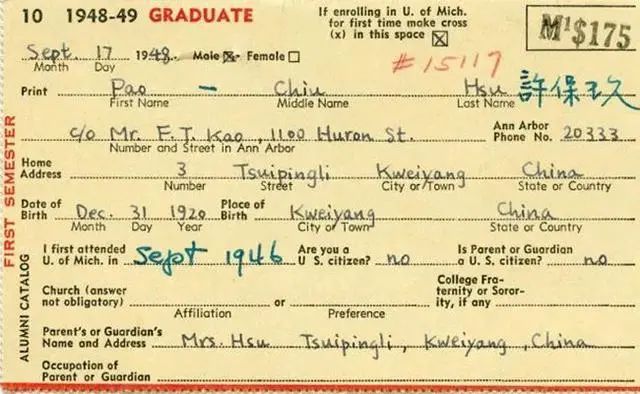 10 1948-49 GRADUATE
If enrolling in U. of Mich.
for first time make cross
(x) in this space ☒
M¹$175
Sept. 17 1948. Male ☒ Female ☐
Month Day
#15117
Print Pao - Chiu Hsu 許保玖
First Name Middle Name Last Name
c/o Mr. F. T. Kao, 1100 Huron St. Ann Arbor Phone No. 20333
Number and Street in Ann Arbor
Home Address 3 Tsuipingli Kweiyang China
Number Street City or Town State or Country
Date of Birth Dec. 31 1920 Place of Birth Kweiyang China
Month Day Year City or Town State or Country
I first attended U. of Mich. in Sept 1946 Are you a U S. citizen? no Is Parent or Guardian a U.S. citizen? no
Church (answer not obligatory) or College Fraternity or Sorority, if any
Affiliation Preference
Parent's or Guardian's Name and Address Mrs. Hsu Tsuipingli, Kweiyang, China
Occupation of Parent or Guardian
FIRST SEMESTER
ALUMNI CATALOG